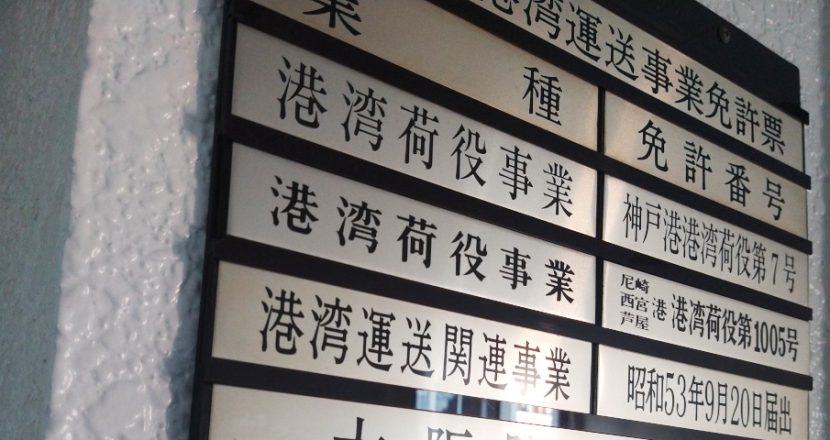 港湾運送事業免許票
業種 免許番号
港湾荷役事業 神戸港港湾荷役第7号
港湾荷役事業 尼崎西宮芦屋港 港湾荷役第1005号
港湾運送関連事業 昭和53年9月20日届出
大阪